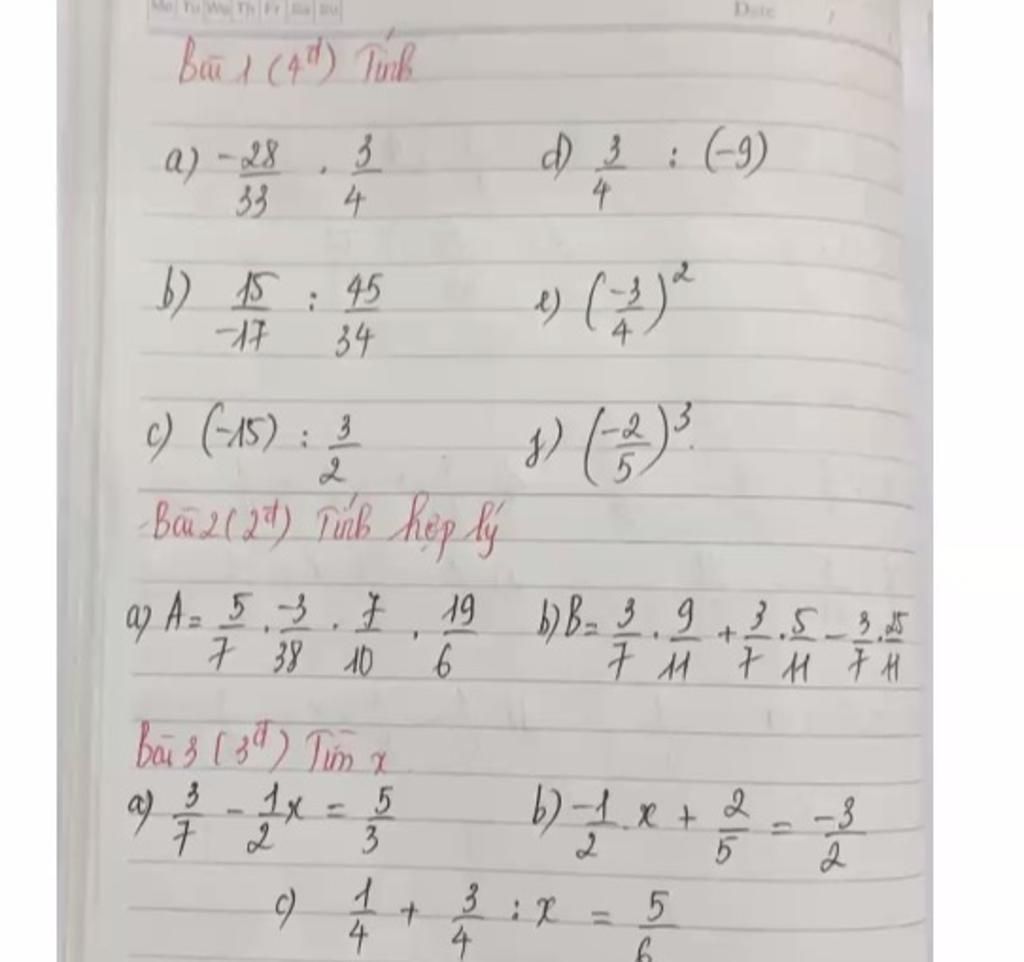 Mo Tu We Th Fr Sa Su Date
Bài 1 (4đ) Tính
a) -28/33 . 3/4 d) 3/4 : (-9)
b) 15/-17 : 45/34 e) (-3/4)^2
c) (-15) : 3/2 f) (-2/5)^3.
Bài 2 (2đ) Tính hợp lý
a) A = 5/7 . -3/38 . 7/10 . 19/6 b) B = 3/7 . 9/11 + 3/7 . 5/11 - 3/7 . 25/11
Bài 3 (3đ) Tìm x
a) 3/7 - 1/2 x = 5/3 b) -1/2 . x + 2/5 = -3/2
c) 1/4 + 3/4 : x = 5/6